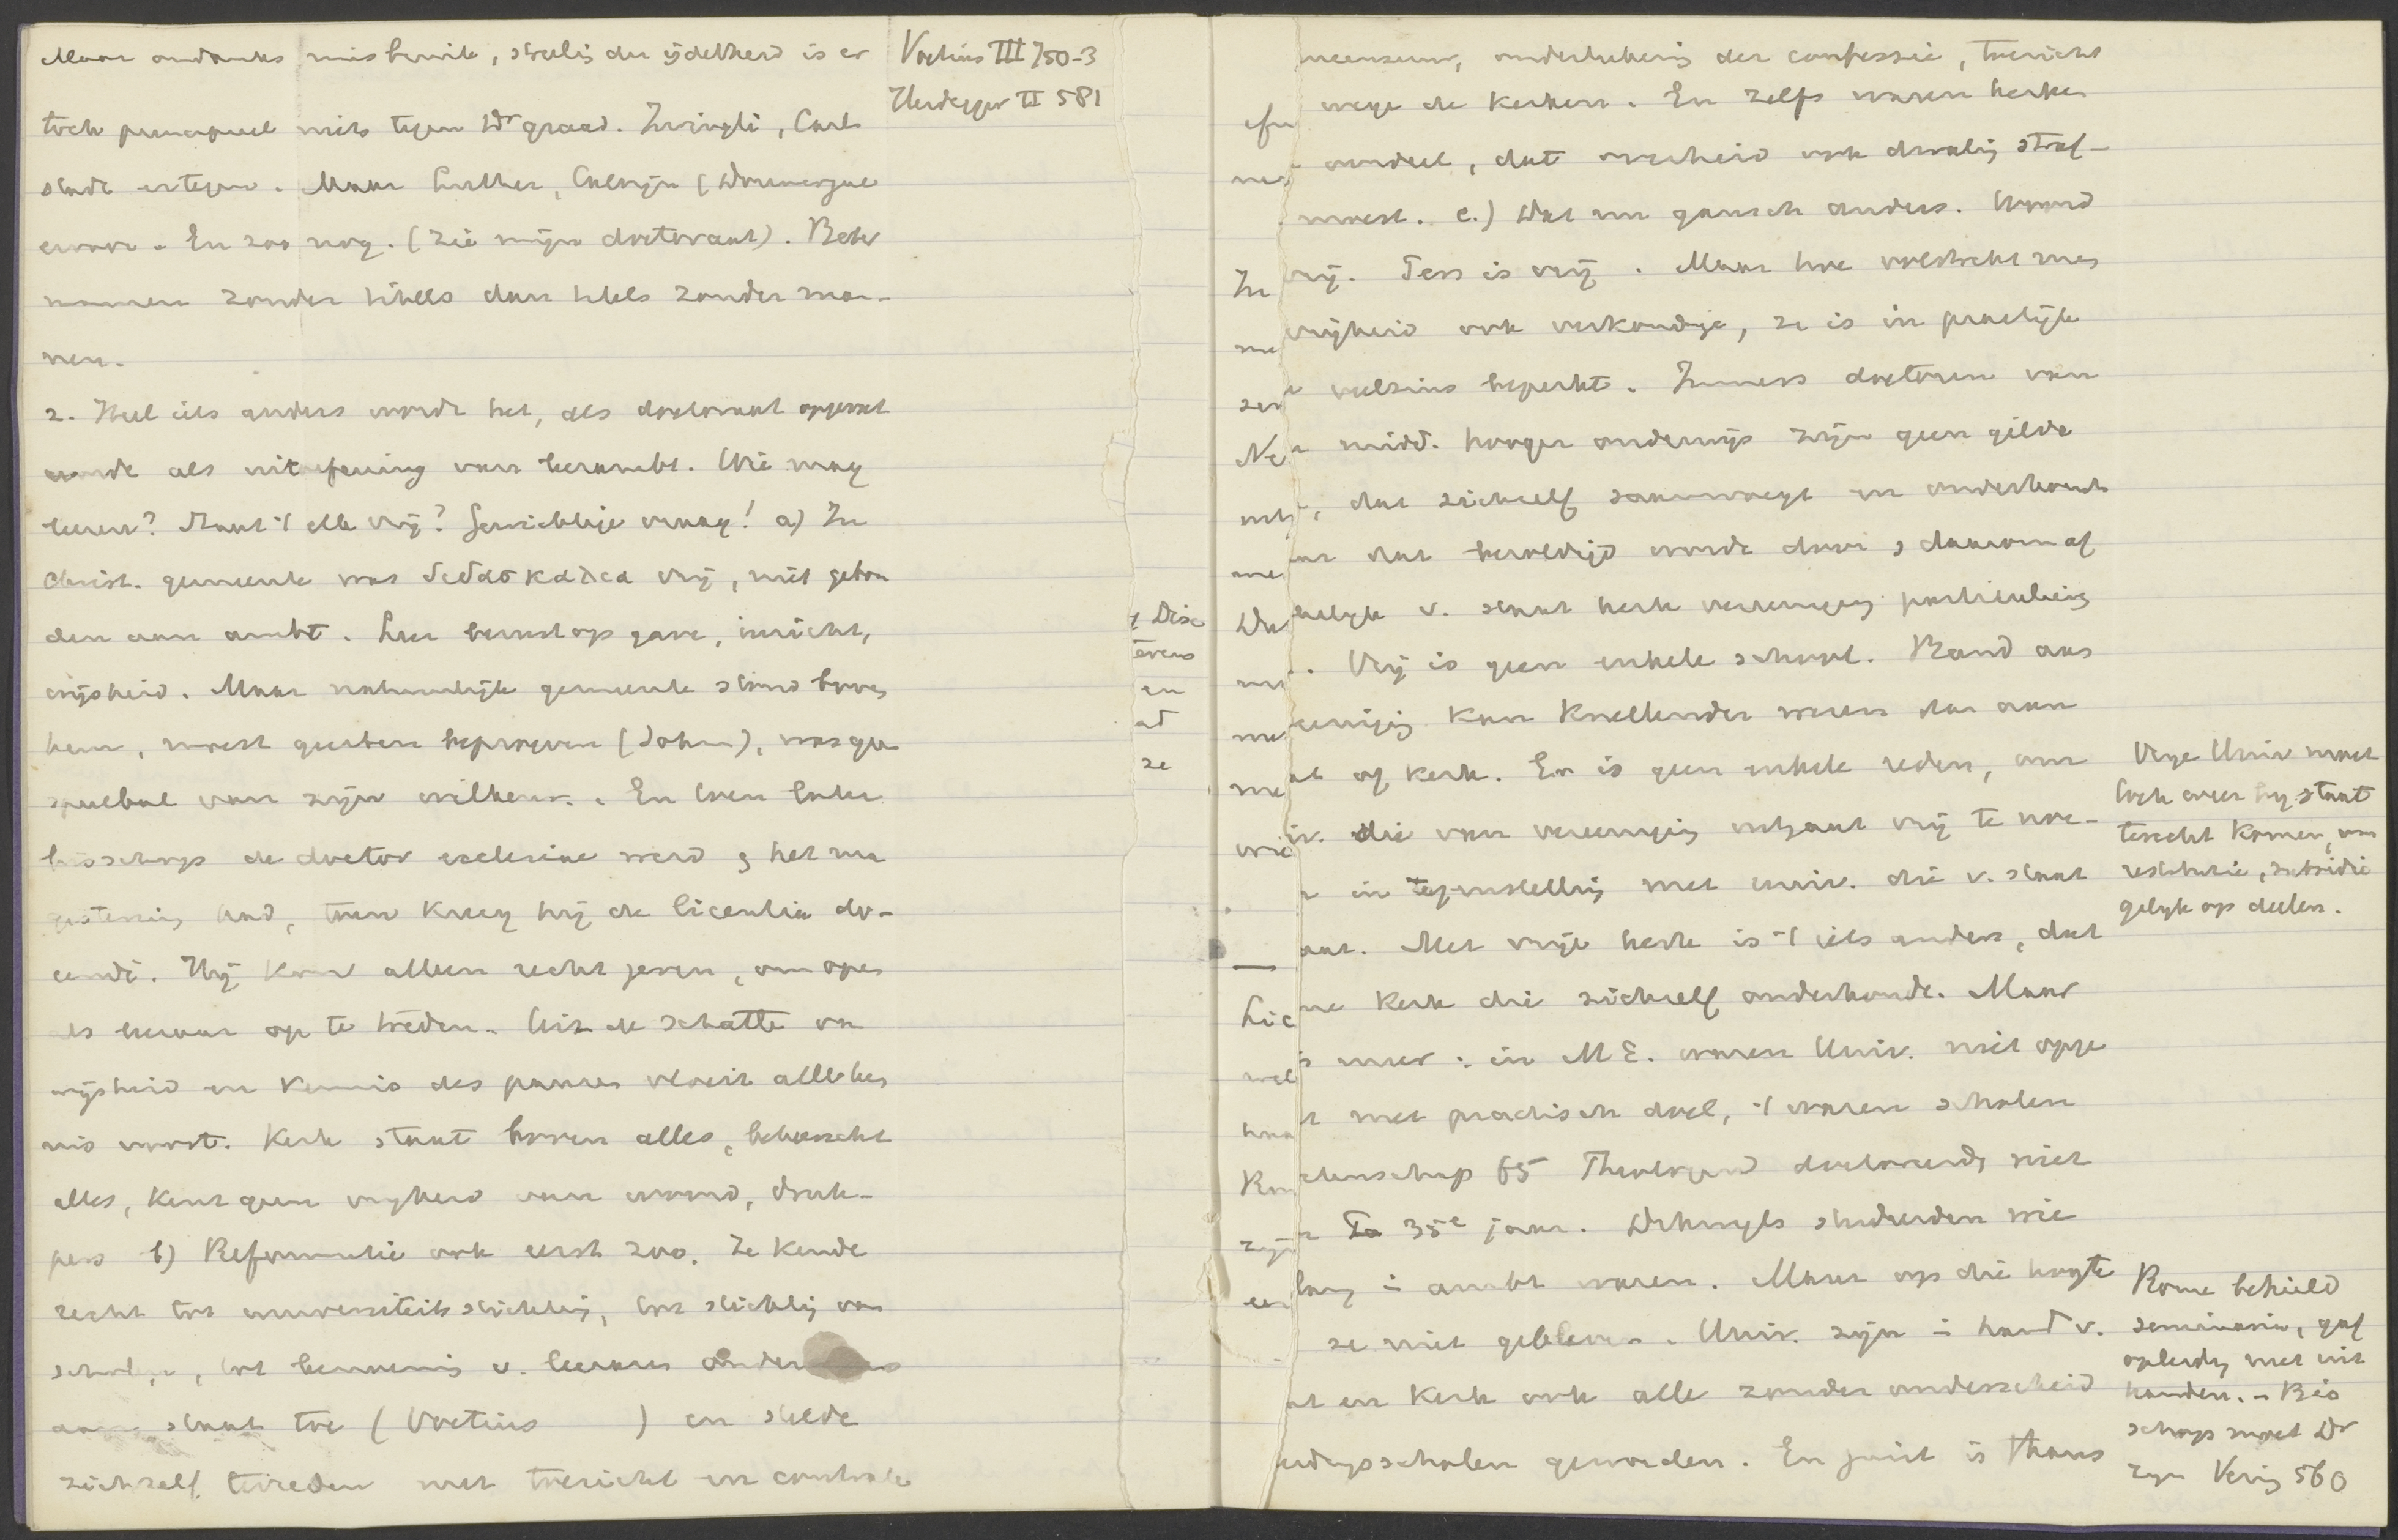 Maar ondanks misbruik, streling der ijdelheid is er
toch principieel niets tegen Dr graad. Zwingli, Carl-
stadt ertegen. Maar Luther, Calvijn (Doumergue
ervoor. En zoo nog. (Zie mijn doctoraat). Beter
mannen zonder titels dan titels zonder man-
nen.
2. Heel iets anders wordt het, als doctoraat opgevat
wordt als uitoefening van leerambt. Wie mag
leeren? Staat 't elk vrij? Gewichtige vraag! a) In
Christ. gemeente was διδασκαλια vrij, niet gebon
den aan ambt. Leer berust op gave, inzicht,
wijsheid. Maar natuurlijk gemeente stond boven
hem, moest geesten beproeven (Joh), was geen
speelbal van zijn willekeur. En toen later
bisschop de doctor ecclesiae werd & het ma
gisterium had, toen kreeg hij de licentia do-
cendi. Hij kon alleen recht geven, om open
als leeraar op te treden. Uit de schatte van
wijsheid en kennis des pauses vloeit alle ken
nis voort. Kerk staat boven alles, beheerscht
alles, kent geen vrijheid van woord, druk-
pers b) Reformatie ook eerst zoo. Ze kende
recht tot universiteitsstichting, tot stichting van
scholen, tot benoeming v. leeraars onder
aan staat toe (Voetius ) en stelde
zichzelf tevreden met toezicht en controle
Voetius III 750-3
Heidegger II 581
& Disc
evens
en
at
ze
censuur, onderteekening der confessie, toezicht
wege de kerken. En zelfs waren kerken
oordeel, dat overheid ook dwaling straf-
moest. c.) Dat nu gansch anders. Woord
vrij. Pers is vrij. Maar hoe volstrekt men
vrijheid ook verkondige, ze is in practijk
veelszins beperkt. Immers doctoren van
midd. hooger onderwijs zijn geen gilde
, dat zichzelf saamvoegt en onderhoudt
dat bezoldigd wordt door & daarom af
helijk v. staat kerk vereeniging particulier
. Vrij is geen enkele school. Band aan
eeniging kan knellender wezen dan aan
at of kerk. Er is geen enkele reden, om
iv. die van vereeniging uitgaat vrij te noe-
in tegenstelling met univ. die v. staat
aat. Met vrije kerk is 't iets anders, dat
ne kerk die zichzelf onderhoudt. Maar
meer: in M E. waren Univ. niet opge
met practisch doel, 't waren scholen
tenschap 65 Theologen doctoreerde niet
35e jaar. Dikwijls studeerden wie
lang in ambt waren. Maar op die hoogte
ze niet gebleven. Univ. zijn in hand v.
at en kerk ook alle zonder onderscheid
eidingsscholen geworden. En juist is thans
Vrije Univ moet
toch weer bij staat
terecht komen, om
restitutie, subsidie
gelijk op deelen.
Rome behield
seminaria, gaf
opleiding niet uit
handen. - Bis
schop moet Dr
zijn Vering 560